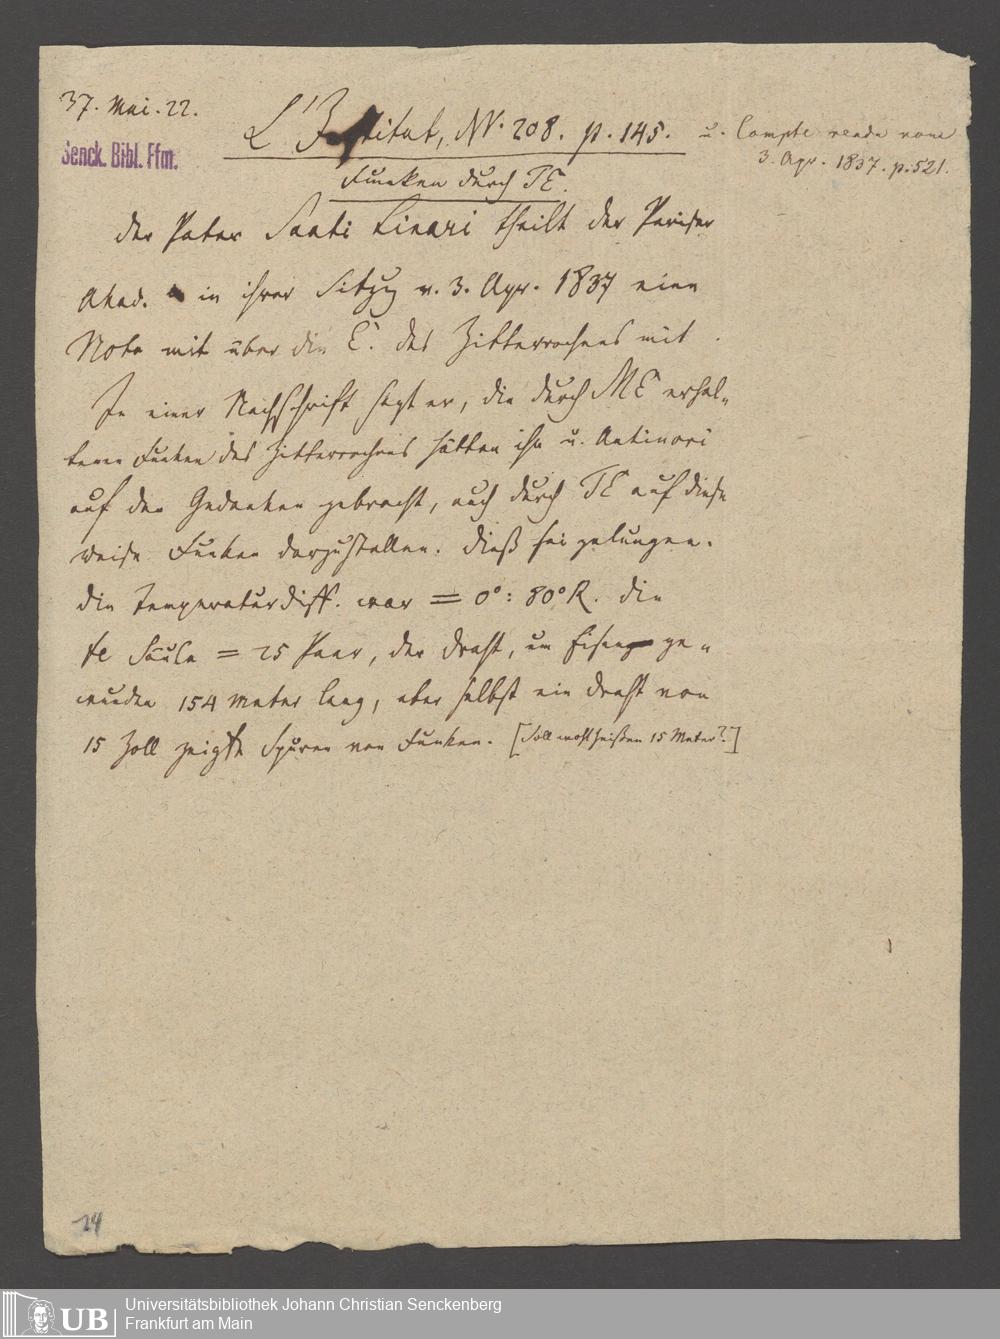 37. Mai. 22.
L'Institut, No. 208. p. 145. u. Compte rendu vom
3. Apr. 1837. p. 521.
Senck. Bibl. Ffm.
Funken durch TE.
Der Pater Santi Linari theilt der Pariser
Akad. in ihrer Sitzg v. 3. Apr. 1837 eine
Note mit über die E. des Zitterrochens mit.
In einer Nachschrift sagt er, die durch ME erhal-
tenen Funken des Zitterrochens hätten ihn u. Antinori
auf den Gedanken gebracht, auch durch TE auf diese
Weise Funken darzustellen. Dieß sei gelungen.
Die Temperaturdiff. war = 0°: 80°R. Die
te Säule = 25 Paar, der Draht, um Eisen ge-
wunden 154 Meter lang, aber selbst ein Draht von
15 Zoll zeigte Spuren von Funken. [Soll wohl heißen 15 Meter?]
24
UB
Universitätsbibliothek Johann Christian Senckenberg
Frankfurt am Main